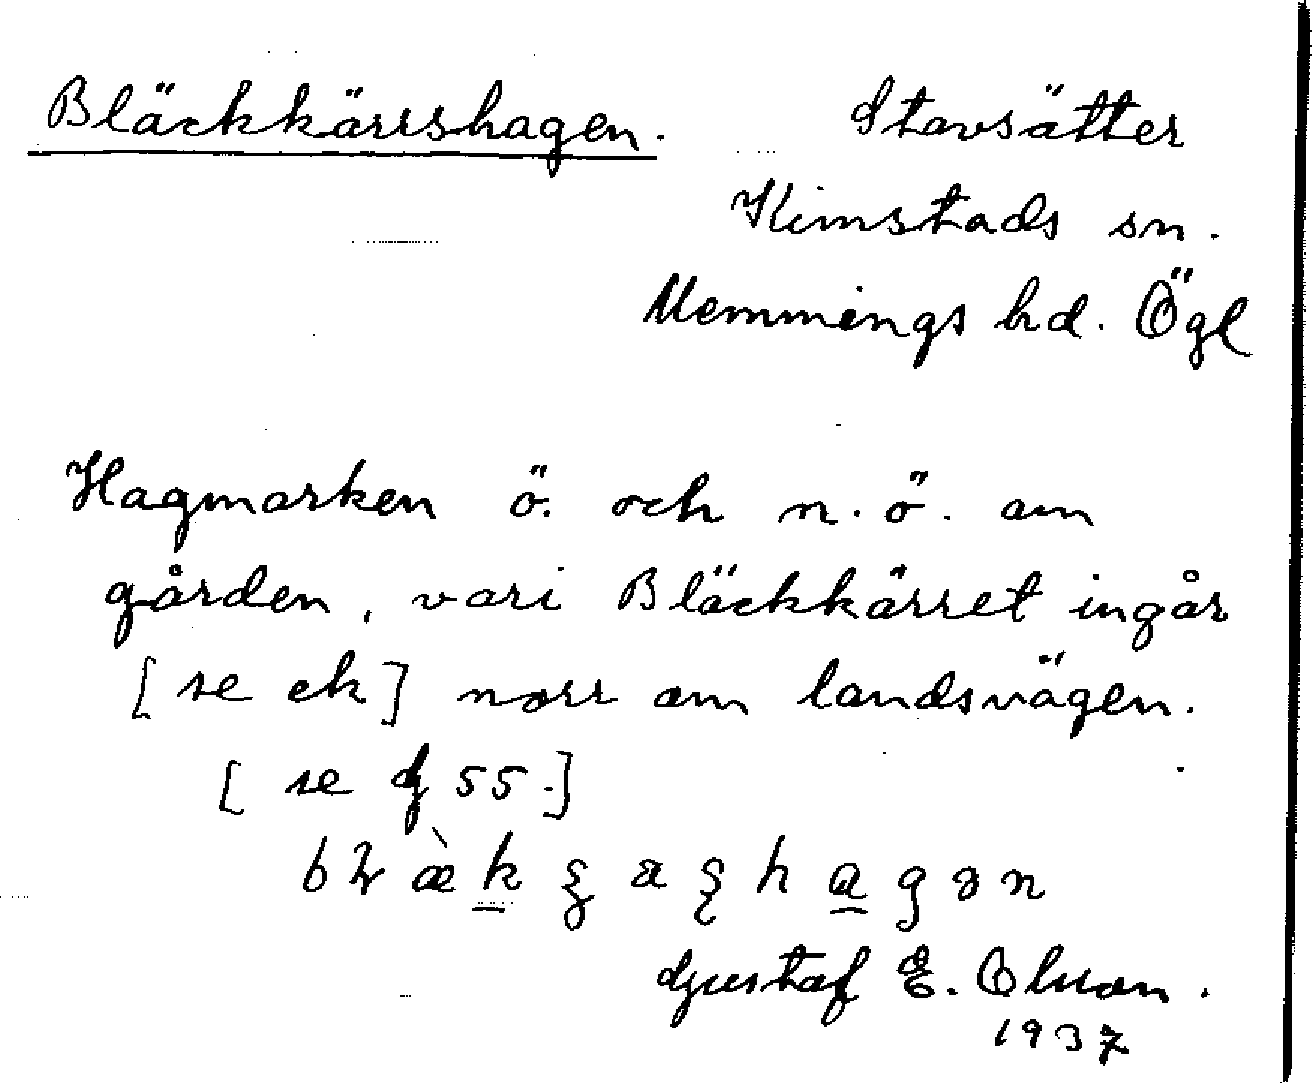 Bläckkärrshagen. Stavsätter
Kimstads sn.
Memmings hd. Ögl
Hagmarken ö. och n.ö. om
gården, vari Bläckkärret ingår
[se ek] norr om landsvägen.
[se g 55.]
Gustaf E. Olsson.
1937